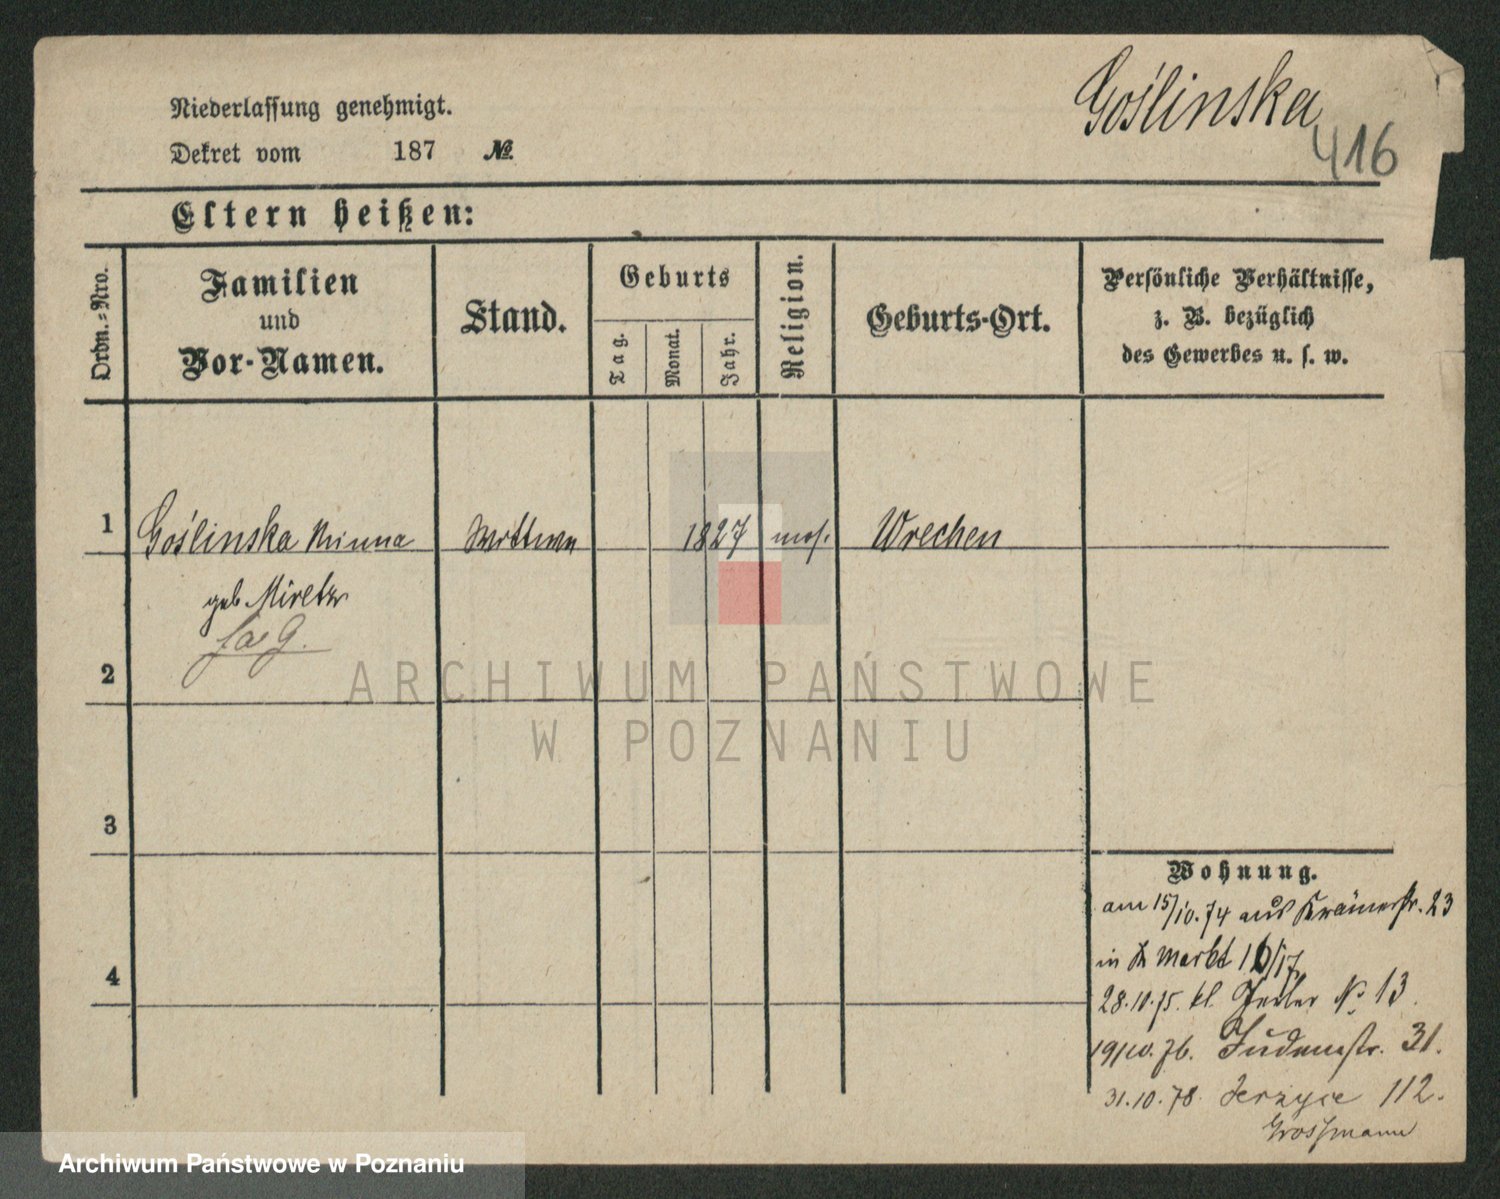 Niederlassung genehmigt.
Dekret vom 187 №
Goślinska
416
Eltern heißen:
Ordn.-Nro.
Familien
und
Vor-Namen.
Stand.
Geburts
Tag.
Monat.
Jahr.
Religion.
Geburts-Ort.
Persönliche Verhältnisse,
z. B. bezüglich
des Gewerbes u. s. w.
1 Goślinska Minna Wittwe 1827 mos. Wrechen
geb.
2
3
4
ARCHIWUM PAŃSTWOWE
W POZNANIU
Wohnung.
am 15/10.74 aus Krämerstr. 23
in Markt 16/17
28.10.75. kl. № 13.
19/10.76. Judenstr. 31.
31.10.78. Jerzyce 112.
Grossmann
Archiwum Państwowe w Poznaniu